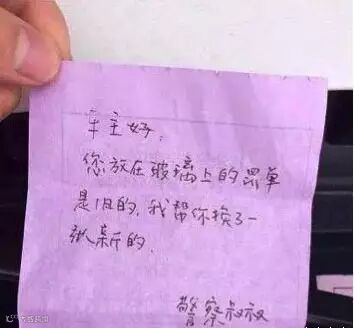 车主好，
您放在玻璃上的罚单
是旧的，我帮你换了一
张新的.
警察叔叔